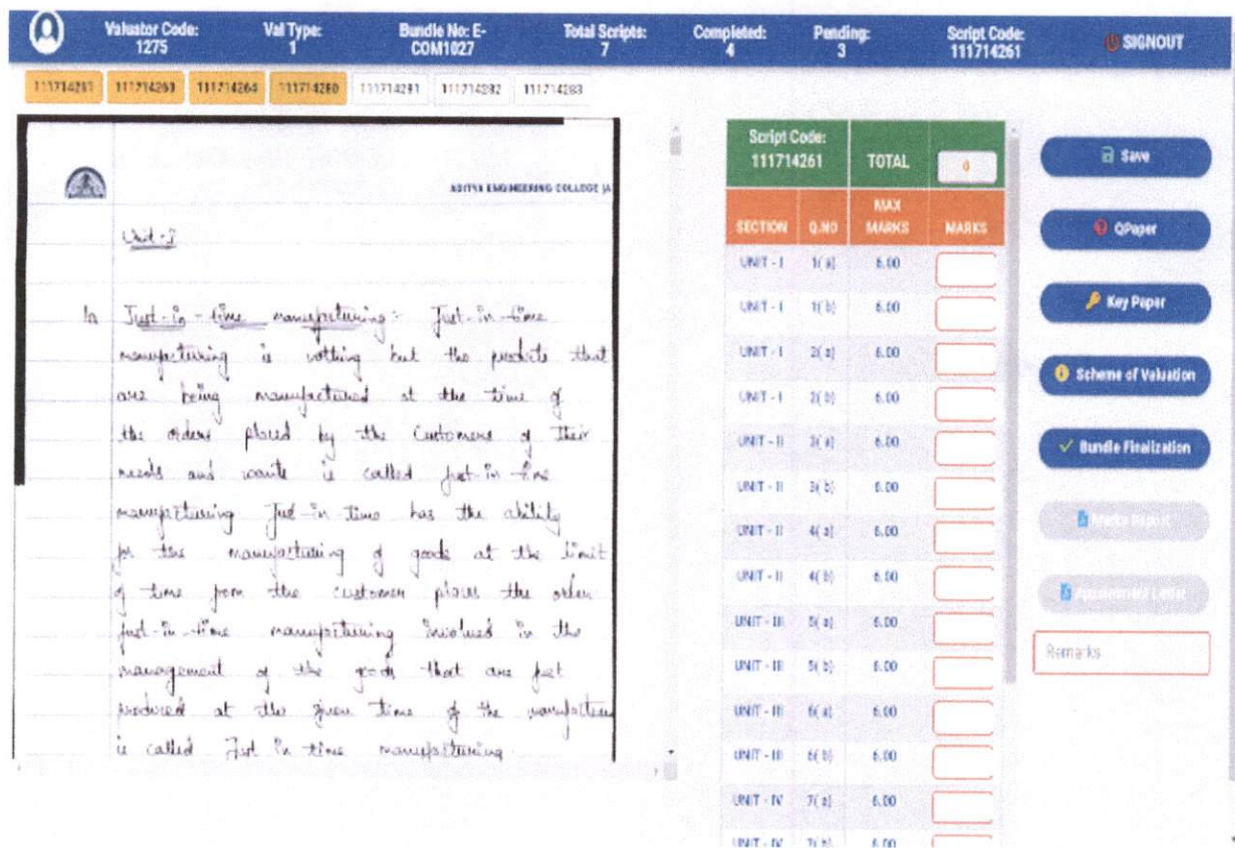 Valuator Code:
1275
Val Type:
1
Bundle No: E-
COM1027
Total Scripts:
7
Completed:
4
Pending:
3
Script Code:
111714261
SIGNOUT
111714264
111714280
111714281
111714282
111714283
ADITYA ENGINEERING COLLEGE (A
Unit-I
1a Just-in-time manufacturing:- Just-in-time
manufacturing is nothing but the products that
are being manufactured at the time of
the orders placed by the customers of their
needs and wants is called just-in time
manufacturing Just-in time has the ability
for the manufacturing of goods at the limit
of time from the customer places the order
just-in-time manufacturing involved in the
management of the goods that are just
produced at the given time of the
is called Just in time manufacturing
Script Code:
111714261
TOTAL
0
SECTION Q.NO MAX MARKS MARKS
UNIT - I 1( a) 6.00
UNIT - I 1( b) 6.00
UNIT - I 2( a) 6.00
UNIT - I 2( b) 6.00
UNIT - II 3( a) 6.00
UNIT - II 3( b) 6.00
UNIT - II 4( a) 6.00
UNIT - II 4( b) 6.00
UNIT - III 5( a) 6.00
UNIT - III 5( b) 6.00
UNIT - III 6( a) 6.00
UNIT - III 6( b) 6.00
UNIT - IV 7( a) 6.00
UNIT - IV 7( b) 6.00
Save
QPaper
Key Paper
Scheme of Valuation
Bundle Finalization
Marks Report
Appointment Letter
Remarks